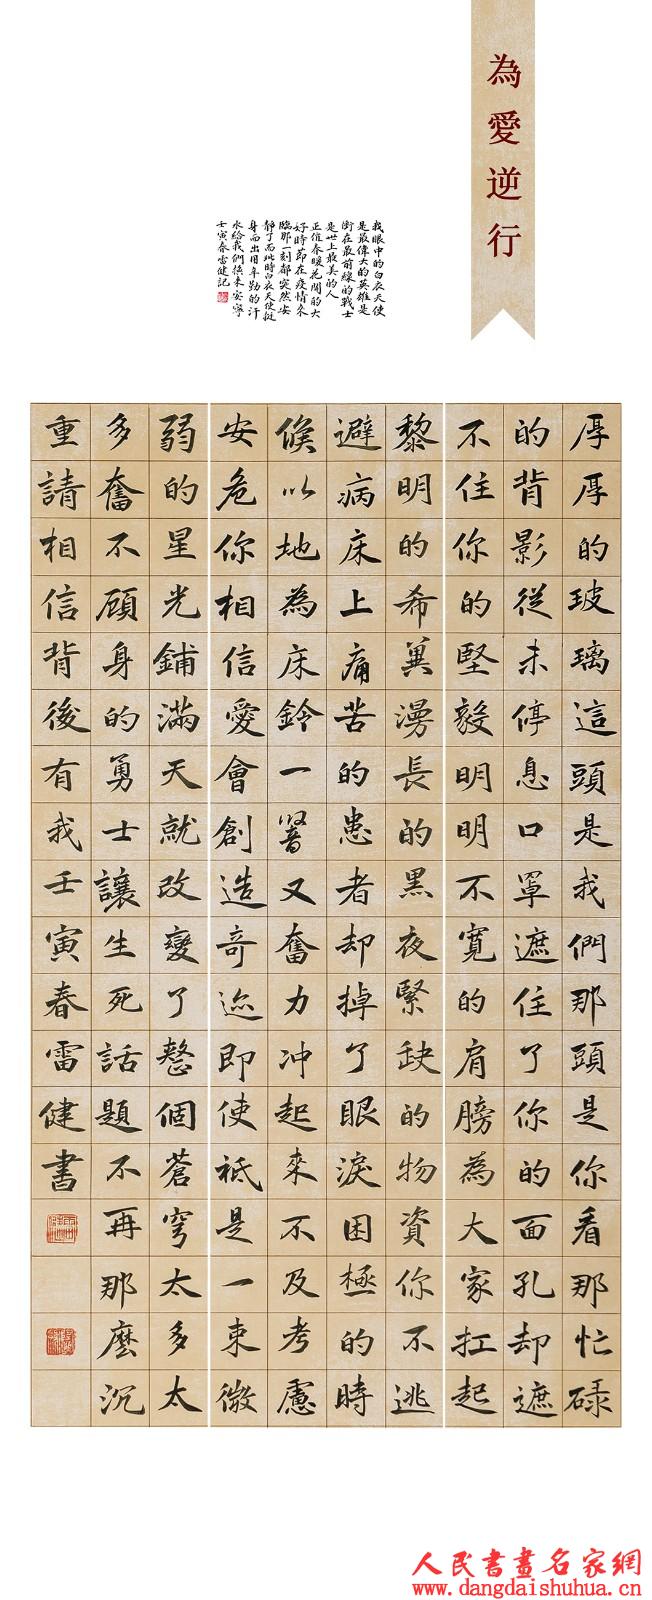 為愛逆行
我眼中的白衣天使
是最偉大的英雄是
衝在最前線的戰士
是世上最美的人
正值春暖花開的大
好時節在疫情來
臨那一刻都突然安
靜了而此時白衣天使挺
身而出用辛勤的汗
水給我們後來安寧
壬寅春雷健記
厚厚的玻璃這頭是我們那頭是你看那忙碌
的背影從未停息口罩遮住了你的面孔却遮
不住你的堅毅明明不寬的肩膀為大家扛起
黎明的希冀漫長的黑夜緊缺的物資你不逃
避病床上痛苦的患者却掉了眼淚困極的時
候以地為床鈴一響又奮力冲起來不及考慮
安危你相信愛會創造奇迹即使祗是一束微
弱的星光鋪滿天就改變了整個蒼穹太多太
多奮不顧身的勇士讓生死話題不再那麼沉
重請相信背後有我壬寅春雷健書
人民書畫名家網
www.dangdaishuhua.cn